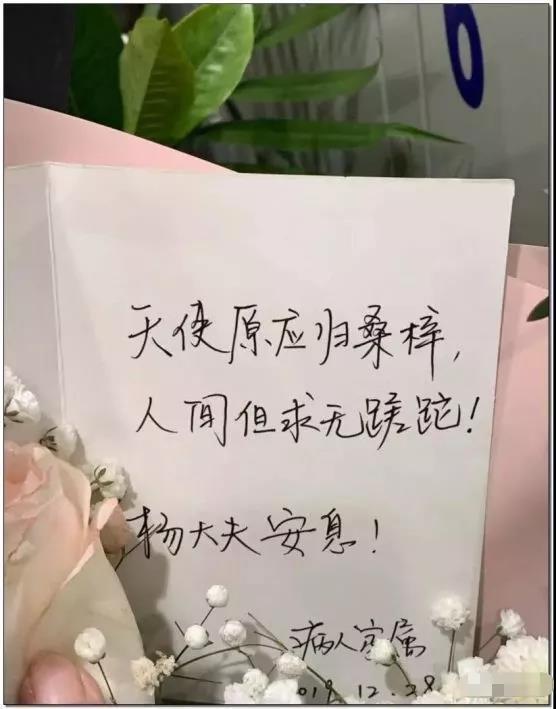 天使原应归桑梓，
人间但求无蹉跎！
杨大夫安息！
病人家属
019.12.28